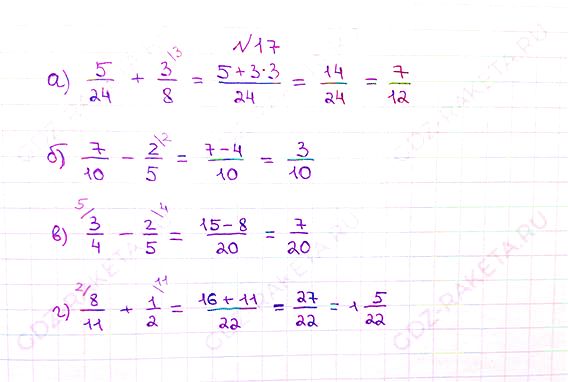 №17
а) 5/24 + 3/8 /3 = (5+3·3)/24 = 14/24 = 7/12
б) 7/10 − 2/5 /2 = (7−4)/10 = 3/10
в) 5/ 3/4 − 2/5 /4 = (15−8)/20 = 7/20
г) 2/ 8/11 + 1/2 /11 = (16+11)/22 = 27/22 = 1 5/22
GDZ-RAKETA.RU
GDZ-RAKETA.RU
GDZ-RAKETA.RU
GDZ-RAKETA.RU